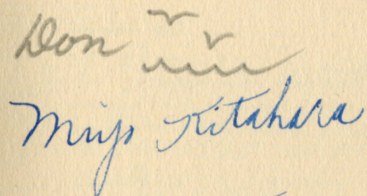 Don
Miyo Kitahara